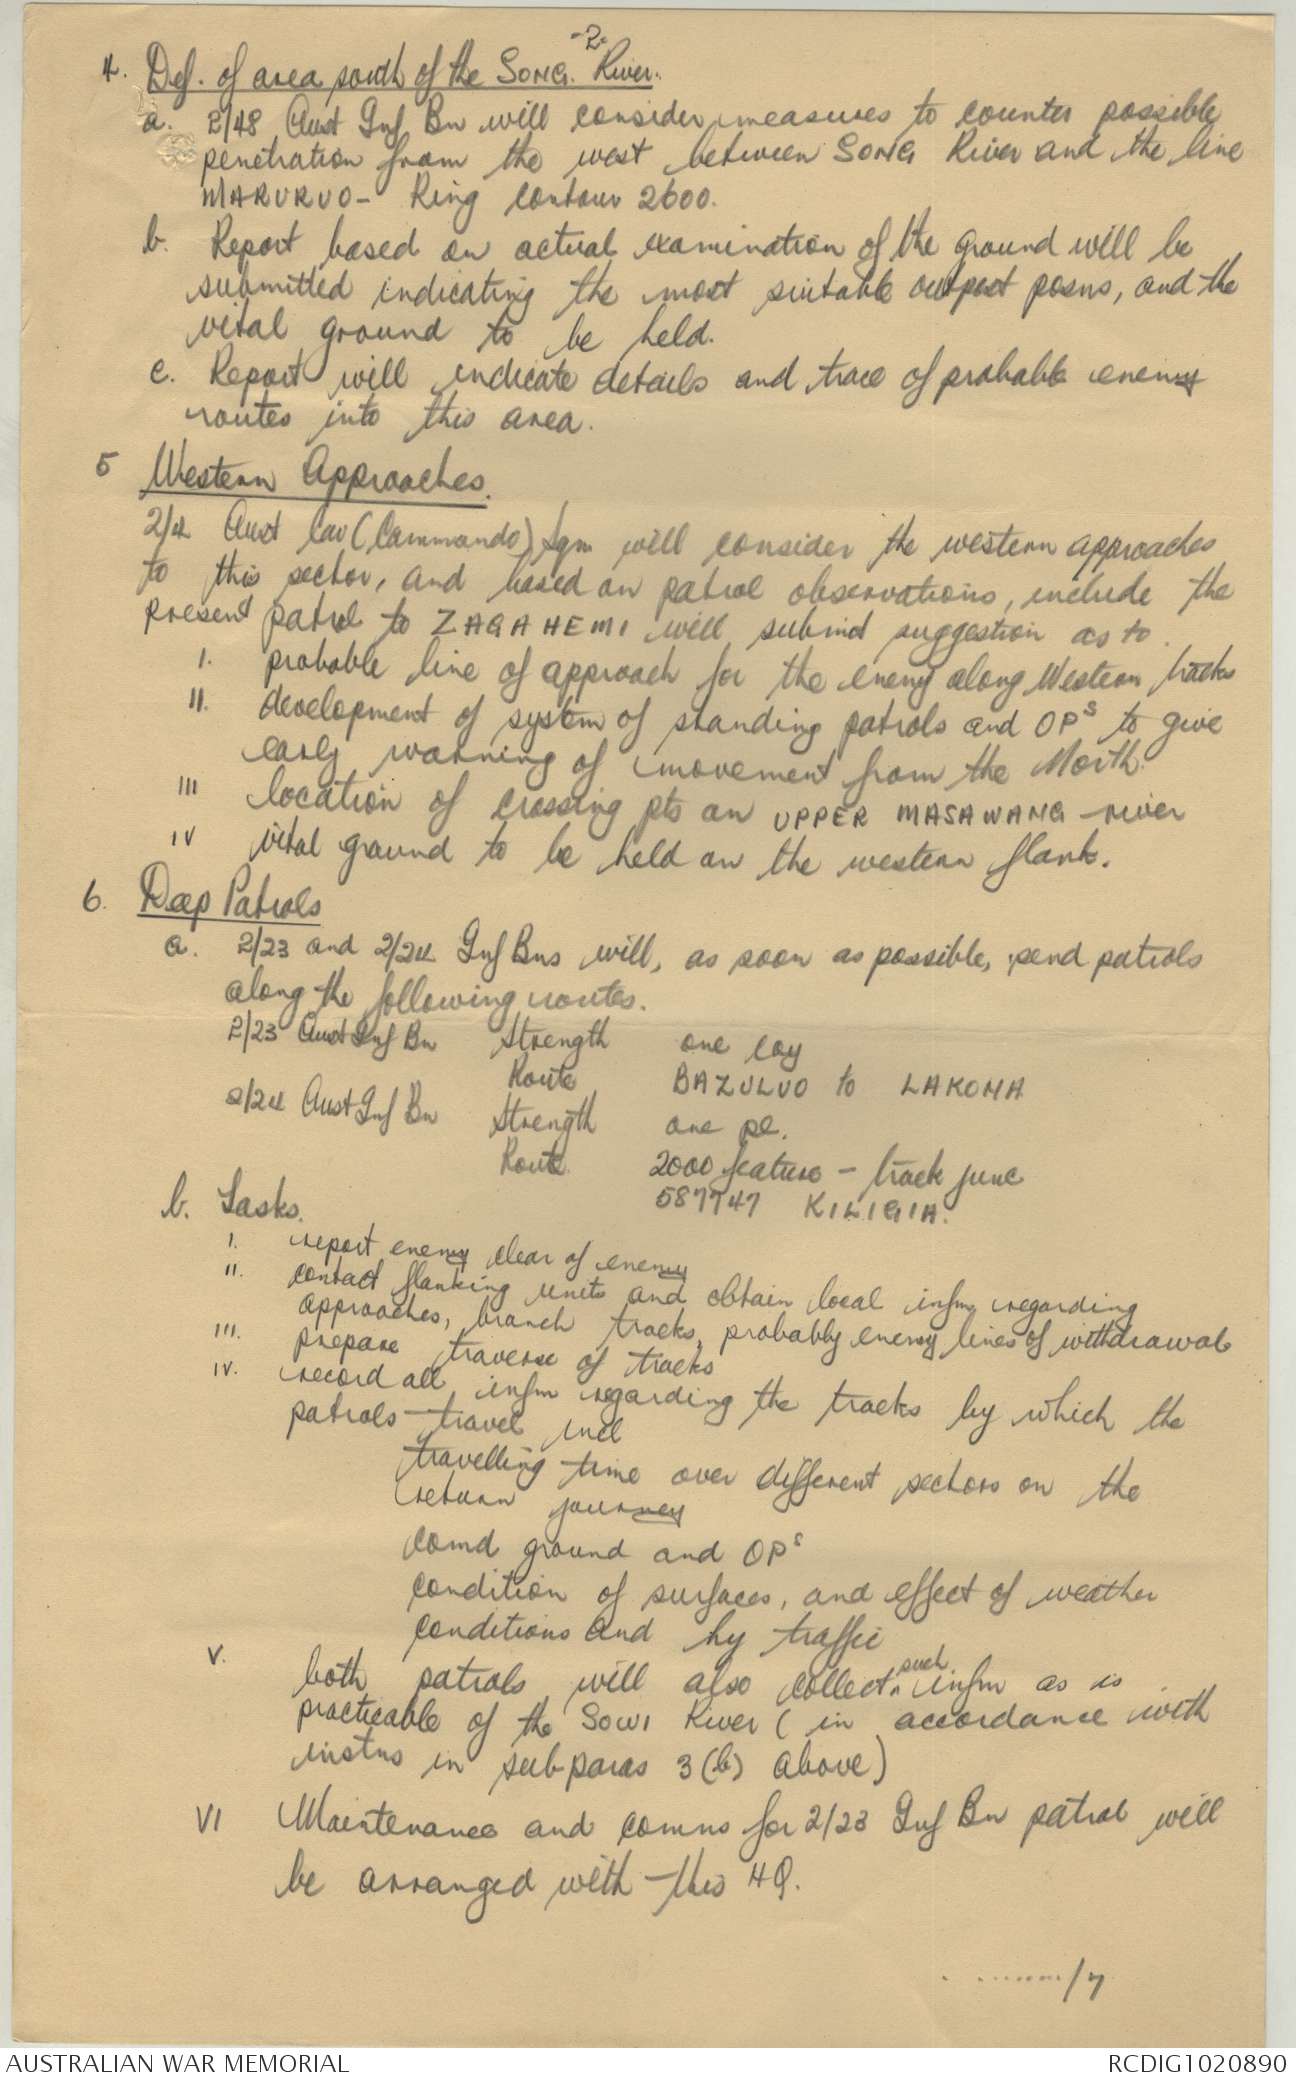 -2-
4. Def. of area south of the SONG. River.
a. 2/48 Aust Inf Bn will consider measures to counter possible
penetration from the west between SONG River and the line
MARURUO - Ring contour 2600.
b. Report based on actual examination of the ground will be
submitted indicating the most suitable outpost posns, and the
vital ground to be held.
c. Report will indicate details and trace of probable enemy
routes into this area.
5 Western Approaches.
2/4 Aust Cav (Commando) Sqn will consider the western approaches
to this sector, and based on patrol observations, include the
present patrol to ZAGAHEMI will submit suggestion as to.
I. probable line of approach for the enemy along Western tracks
II. development of system of standing patrols and OPs to give
early warning of movement from the North.
III location of crossing pts on UPPER MASAWANG river
IV vital ground to be held on the western flank.
6. Deep Patrols
a. 2/23 and 2/24 Inf Bns will, as soon as possible, send patrols
along the following routes.
2/23 Aust Inf Bn Strength one coy
Route BAZULUO to LAKONA
2/24 Aust Inf Bn Strength one pl.
Route 2000 feature - track junc
587747 KILIGIA.
b. Tasks.
I. report enemy clear of enemy
II. contact flanking units and obtain local infm regarding
approaches, branch tracks, probably enemy lines of withdrawal
III. prepare traverse of tracks
IV. record all infm regarding the tracks by which the
patrols travel incl
travelling time over different sectors on the
return journey
comd ground and OPs
condition of surfaces, and effect of weather
conditions and hy traffic
V. both patrols will also collect such infm as is
practicable of the SOWI River (in accordance with
instns in sub-paras 3(b) above)
VI Maintenance and comns for 2/23 Inf Bn patrol will
be arranged with this HQ.
........./7
AUSTRALIAN WAR MEMORIAL RCDIG1020890